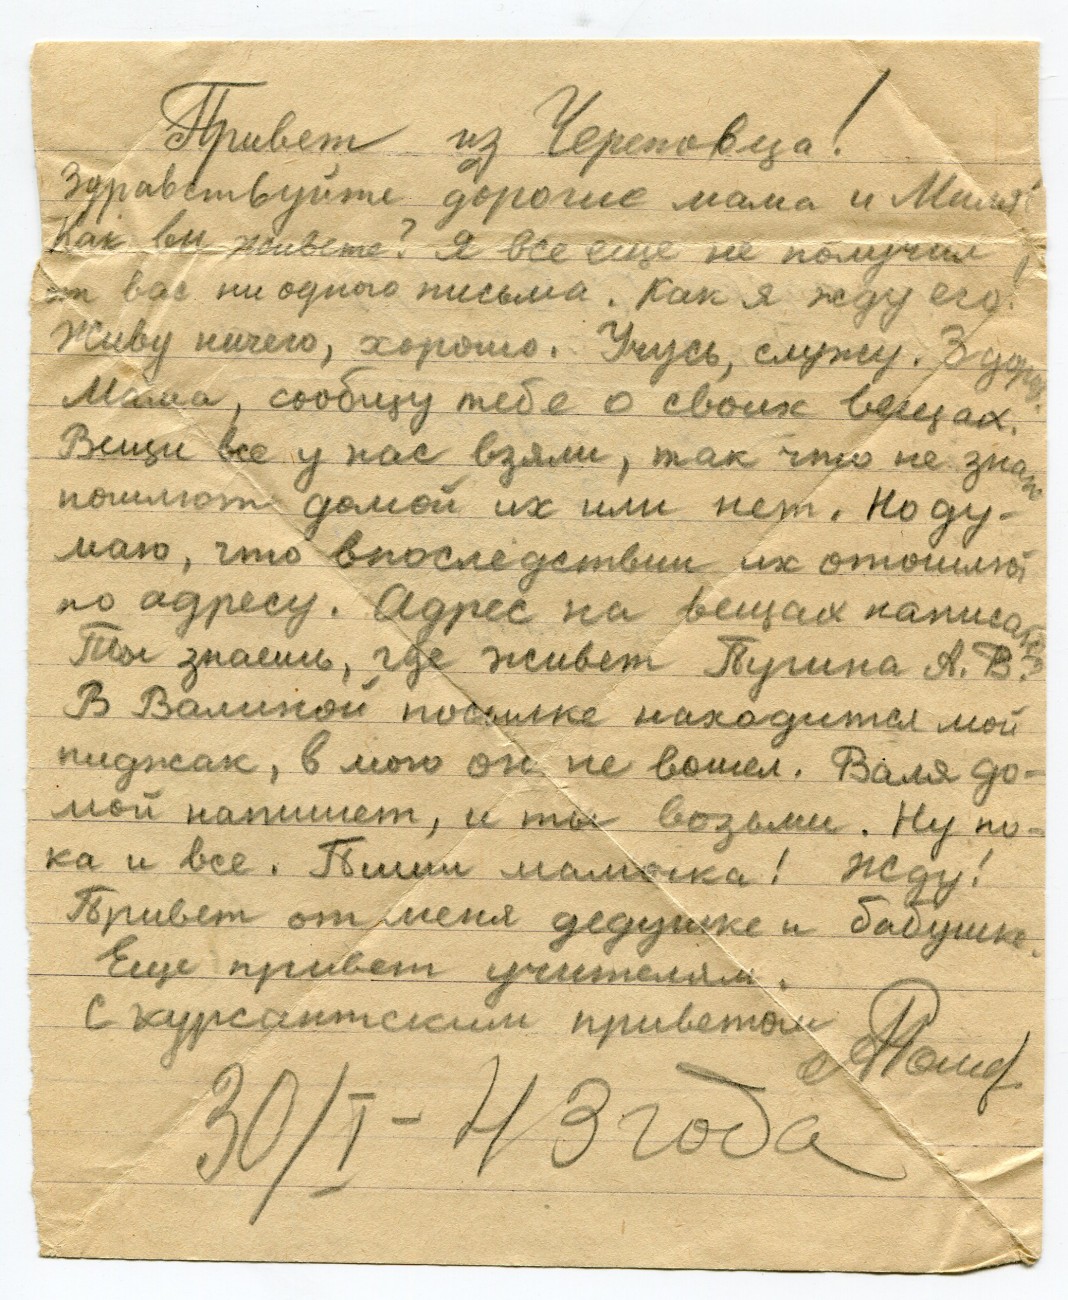 Привет из Череповца!
Здравствуйте дорогие мама и Миля!
Как вы живете? Я все еще не получил
от вас ни одного письма. Как я жду его!
Живу ничего, хорошо. Учусь, служу. Здоров.
Мама, сообщу тебе о своих вещах.
Вещи все у нас взяли, так что не знаю
пошлют домой их или нет. Но ду-
маю, что впоследствии их отошлют
по адресу. Адрес на вещах написан.
Ты знаешь, где живет Пугина А.В.?
В Валиной посылке находится мой
пиджак, в мою он не вошел. Валя до-
мой напишет, и ты возьми. Ну по-
ка и все. Пиши мамочка! Жду!
Привет от меня дедушке и бабушке.
Еще привет учителям.
С курсантским приветом
30/I – 43 года